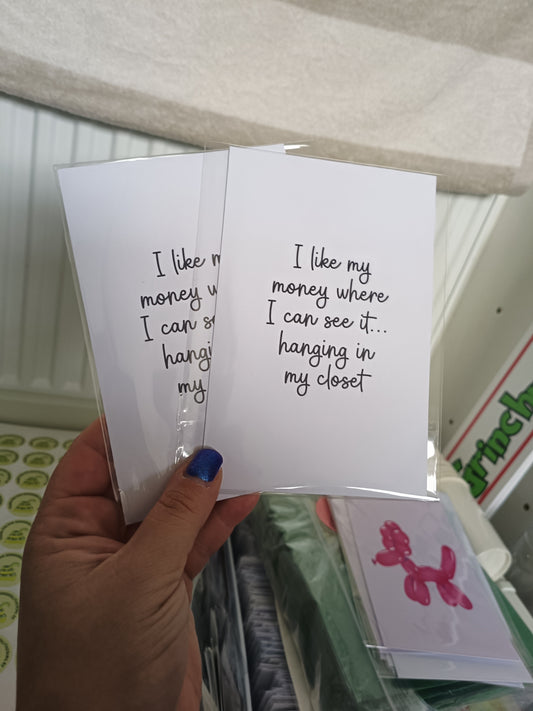 I like m
money w
I can s
hangi
my
I like my
money where
I can see it...
hanging in
my closet
grinch